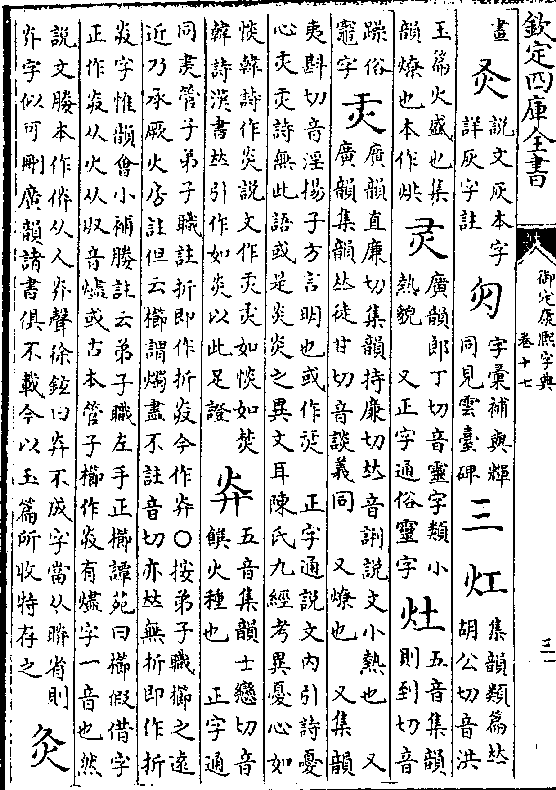 欽定四庫全書
御定康熙字典
卷十七
三一
畫
說文灰本字
詳灰字註
字彙補與輝
同見雲臺碑
三
灴
集韻類篇𠀤
胡公切音洪
玉篇火盛也集
韻燎也本作烘
灵
廣韻郎丁切音靈字類小
熱貌 又正字通俗靈字
灶
五音集韻
則到切音
躁俗
竈字
㶣
廣韻直廉切集韻持廉切𠀤音 說文小熱也 又
廣韻集韻𠀤徒甘切音談義同 又燎也 又集韻
夷斟切音淫揚子方言明也或作 正字通說文內引詩憂
心㶣㶣詩無此語或是炎炎之異文耳陳氏九經考異憂心如
惔韓詩作炎說文作㶣㶣如惔如焚
韓詩漢書𠀤引作如炎以此足證
灷
五音集韻士戀切音
饌火種也 正字通
同㶳管子弟子職註折即作折㶳今作灷○按弟子職櫛之遠
近乃承厥火居註但云櫛謂燭盡不註音切亦𠀤無折即作折
㶳字惟韻會小補媵註云弟子職左手正櫛譚苑曰櫛假借字
正作㶳从火从収音燼或古本管子櫛作㶳有燼字一音也然
說文媵本作㑞从人灷聲徐鉉曰灷不成字當从朕省則
灷字似可刪廣韻諸書俱不載今以玉篇所收特存之
灸